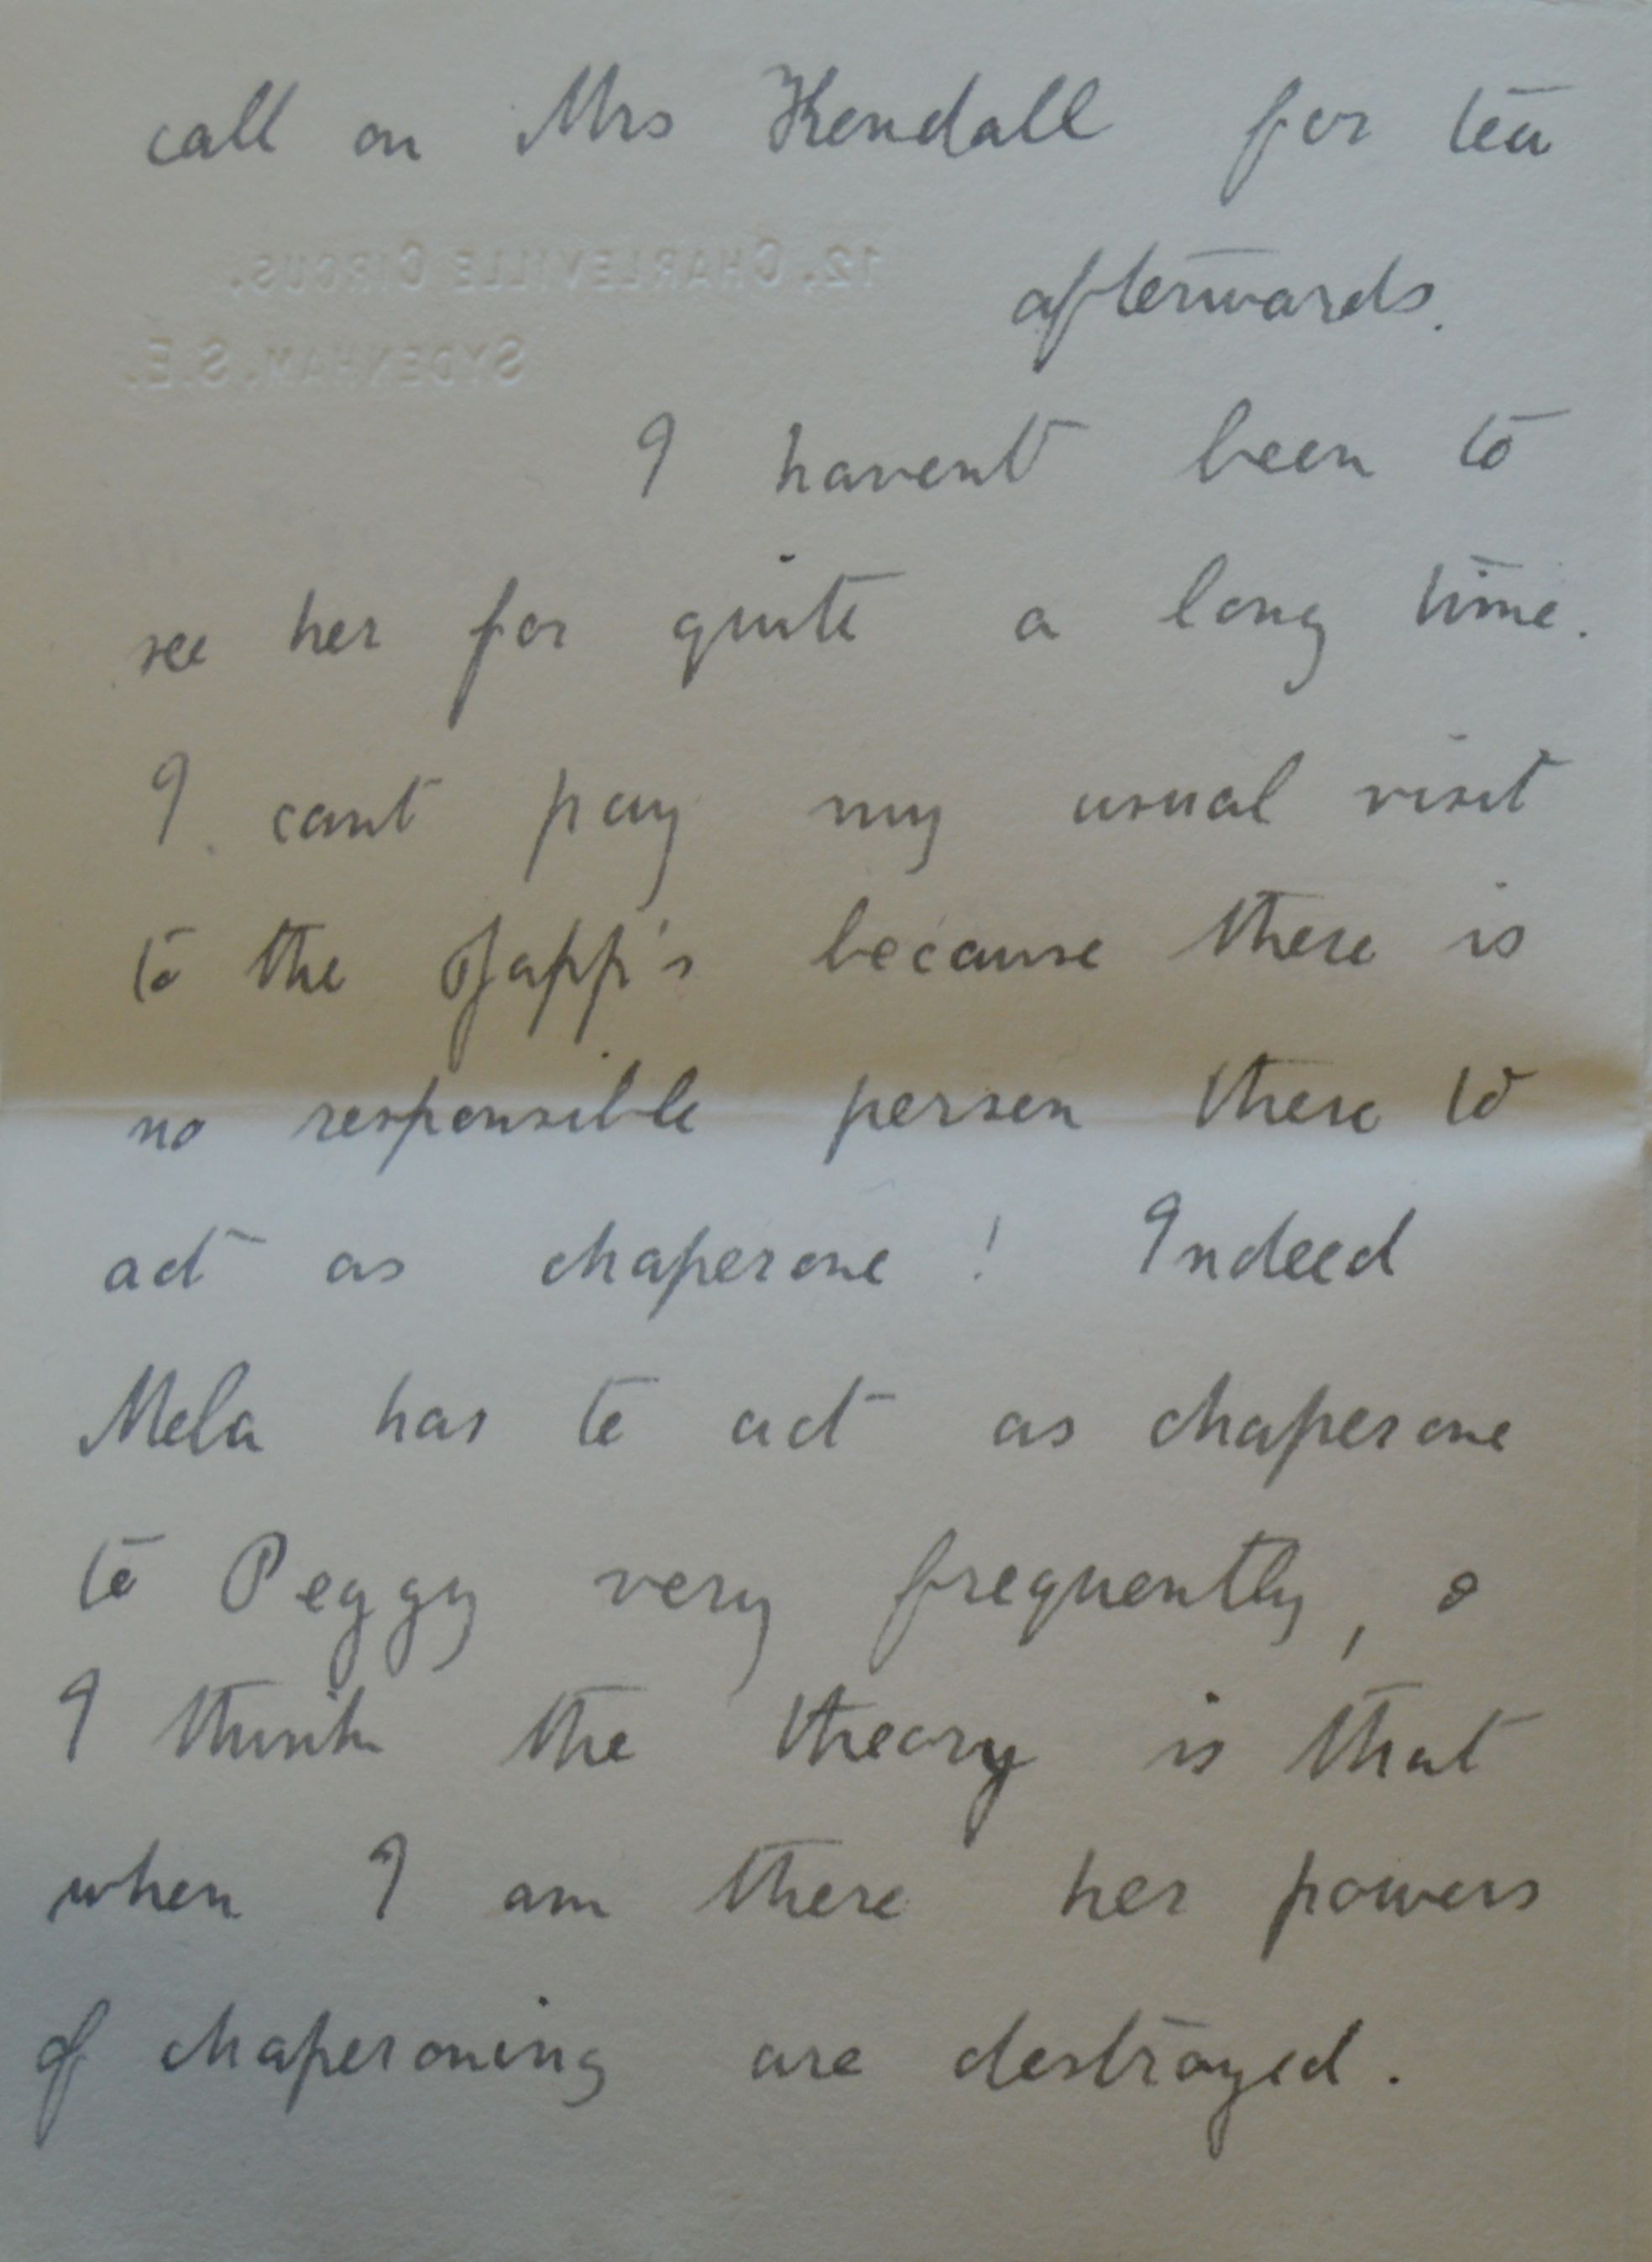 call on Mrs Kendall for tea
12, CHARLEVILLE CIRCUS,
afterwards.
SYDENHAM, S.E.
I havent been to
see her for quite a long time.
I cant pay my usual visit
to the Japp's because there is
no responsible person there to
act as chaperone ! Indeed
Mela has to act as chaperone
to Peggy very frequently, &
I think the theory is that
when I am there her powers
of chaperoning are destroyed.